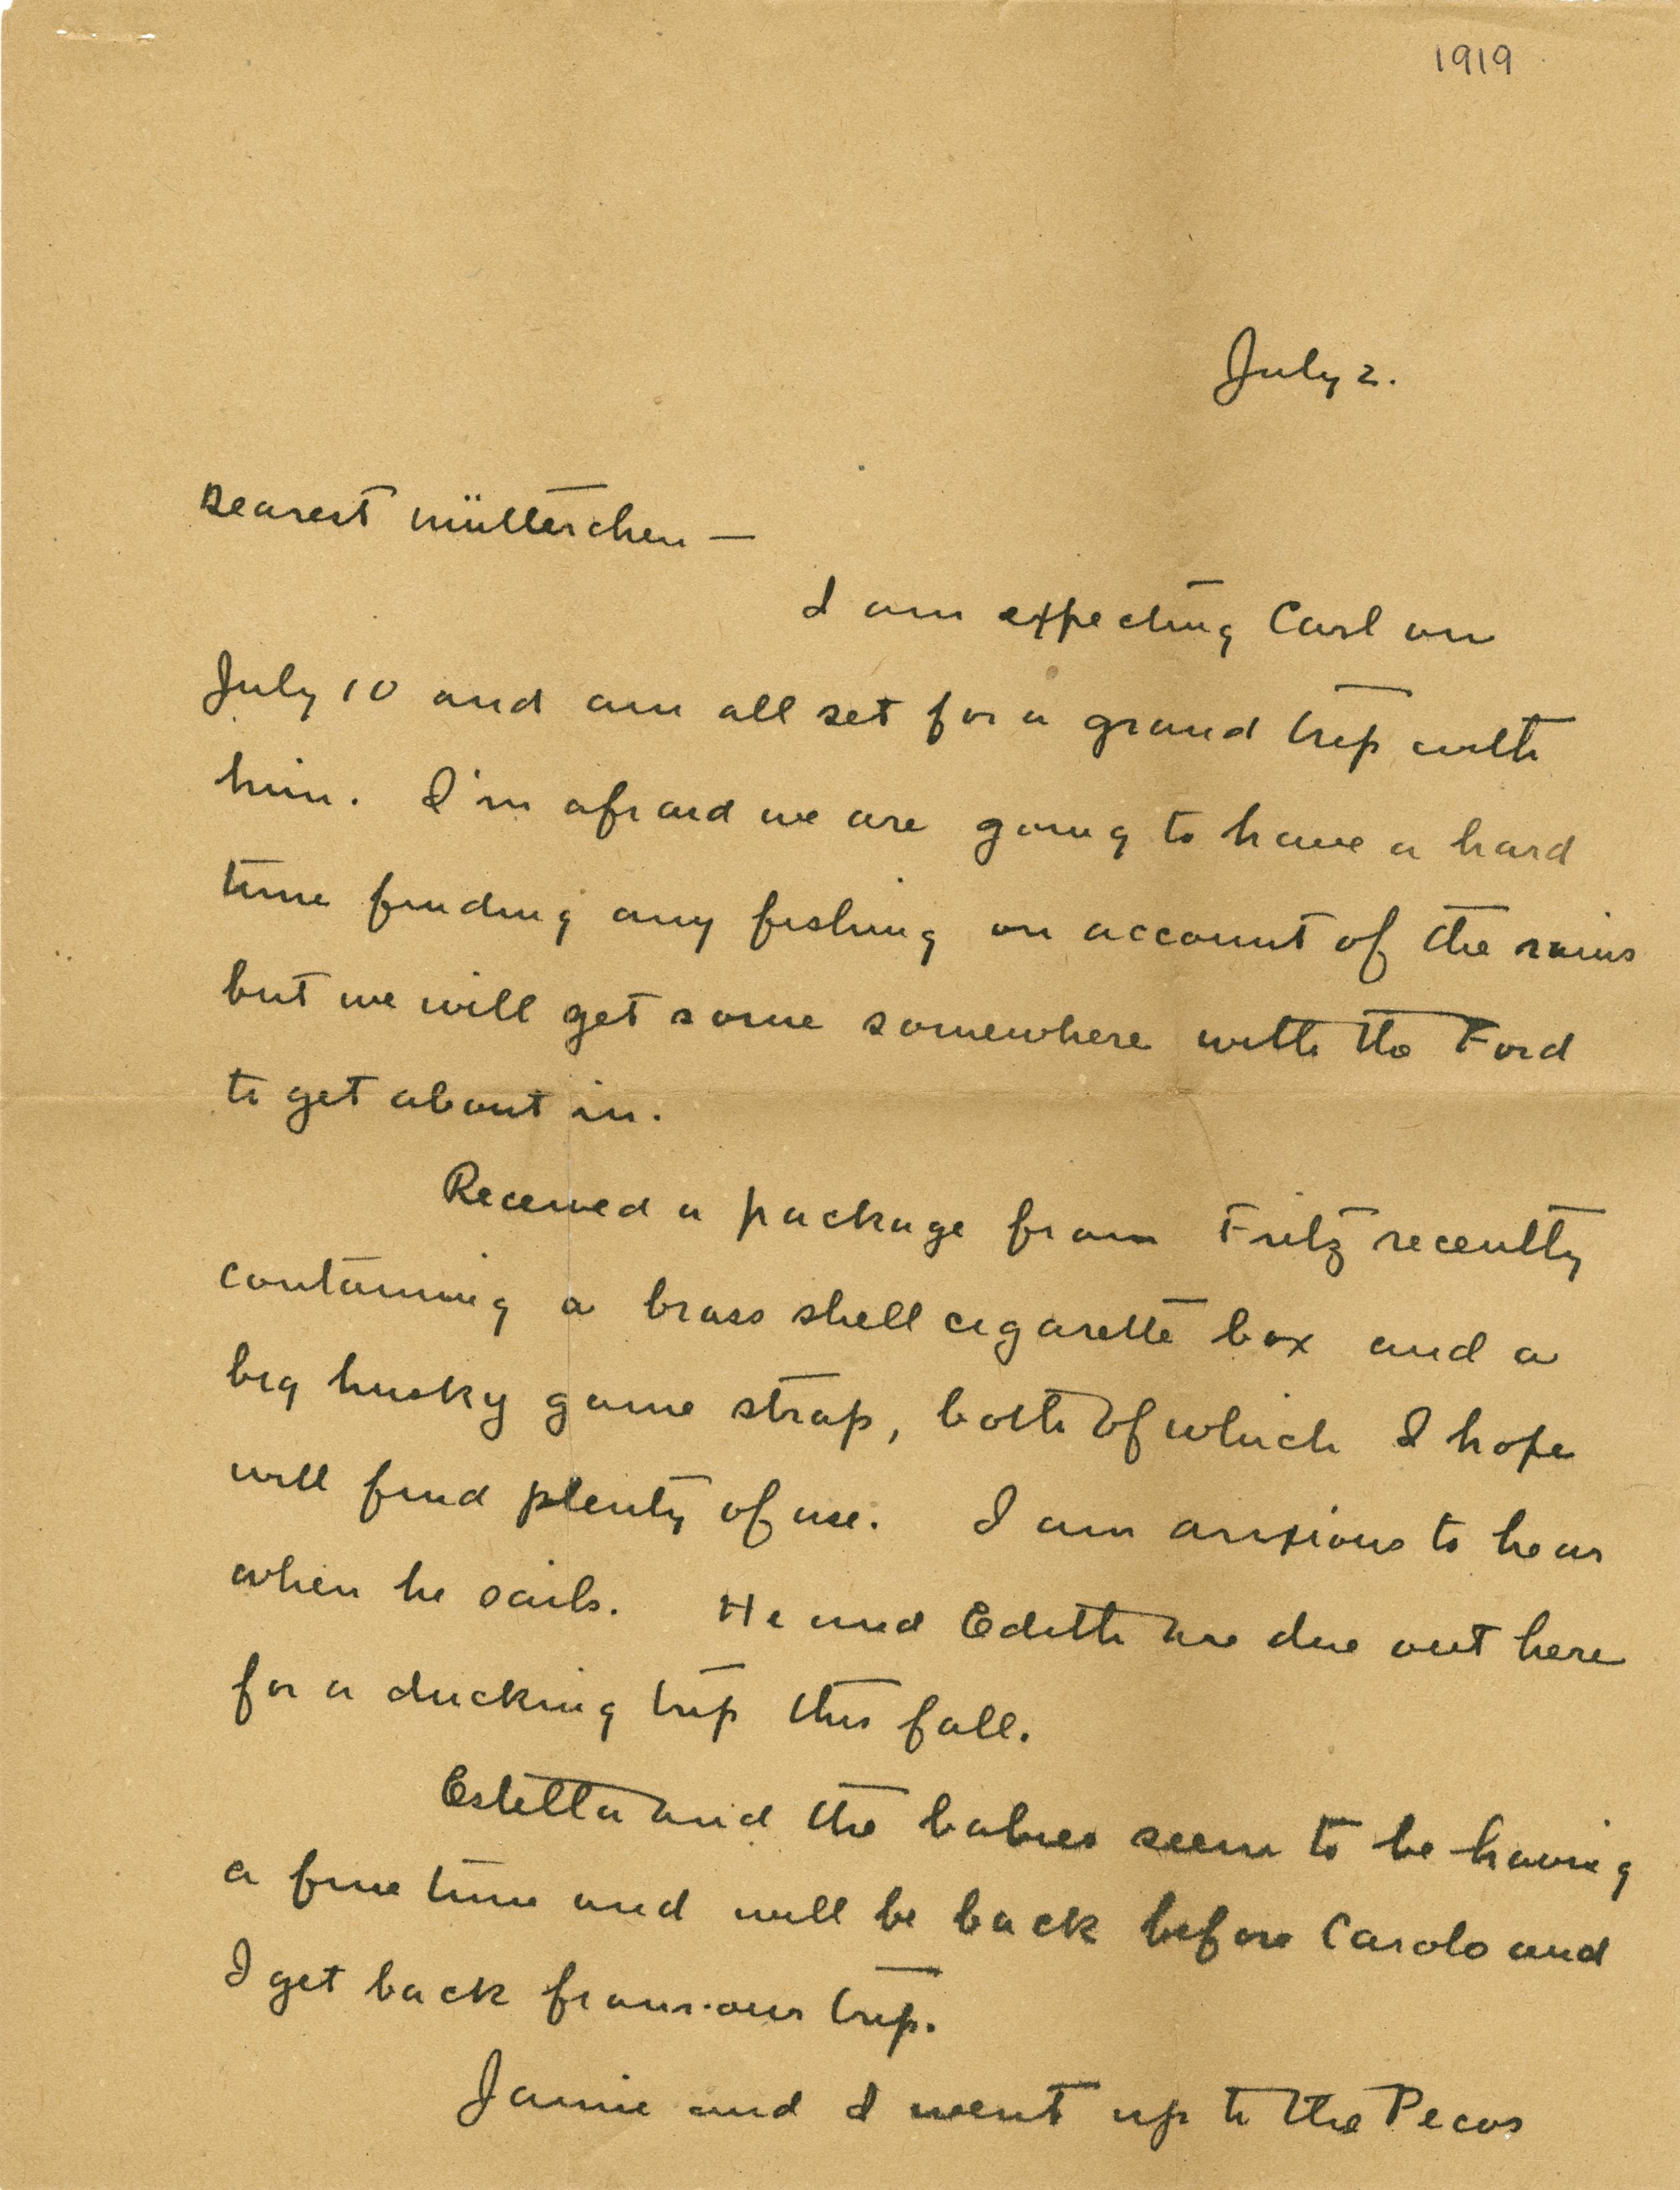 1919
July 2.
Dearest Mütterchen —
I am expecting Carl on
July 10 and am all set for a grand trip with
him. I'm afraid we are going to have a hard
time finding any fishing on account of the rains
but we will get some somewhere with the Ford
to get about in.
Received a package from Fritz recently
containing a brass shell cigarette box and a
big husky game strap, both of which I hope
will find plenty of use. I am anxious to hear
when he sails. He and Edith are due out here
for a ducking trip this fall.
Estella and the babies seem to be having
a fine time and will be back before Carolo and
I get back from our trip.
Jamie and I went up to the Pecos